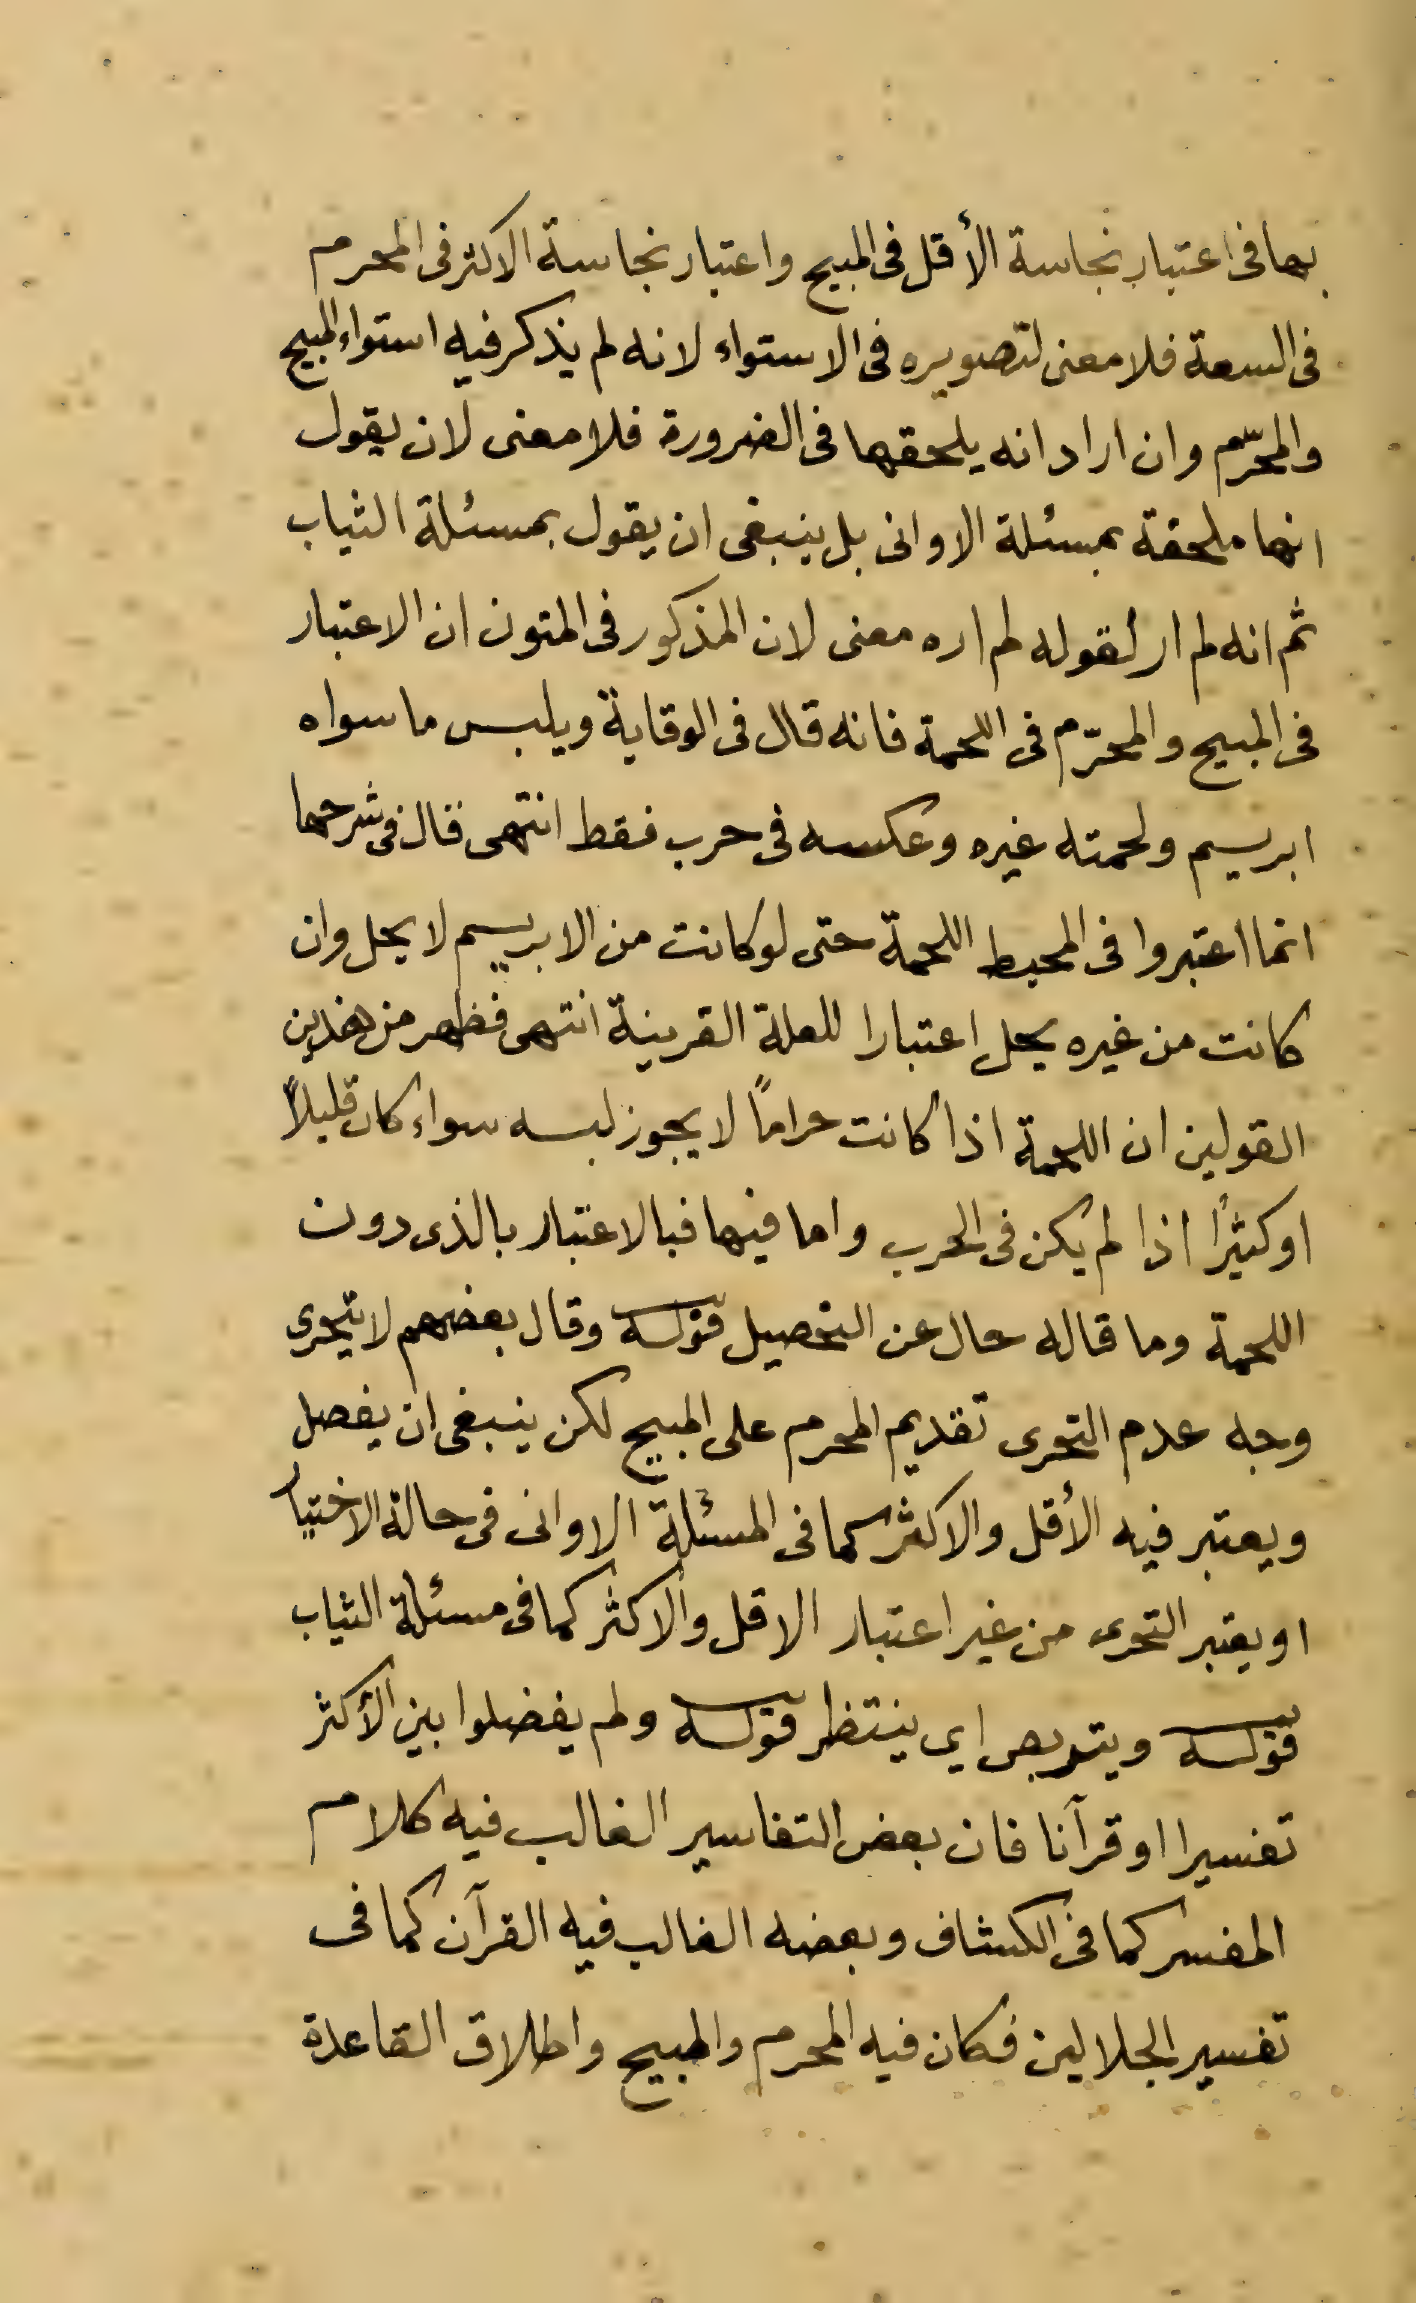 بها فى اعتبار نجاسة الأقل فى المبيح واعتبار نجاسة الاكثر فى المحرم
فى السعة فلا معنى لتصويره فى الاستواء لانه لم يذكر فيه استواء المبيح
والمحرّم وان اراد انه يلحقها فى الضرورة فلا معنى لان يقول
انها ملحقة بمسئلة الاوانى بل ينبغى ان يقول بمسئلة الثياب
ثم انه لم ار لقوله لم اره معنى لان المذكور فى المتون ان الاعتبار
فى المبيح والمحرّم فى اللحمة فانه قال فى الوقاية ويلبس ما سواه
ابريسم ولحمته غيره وعكسه فى حرب فقط انتهى قال فى شرحها
انما اعتبروا فى المحيط اللحمة حتى لو كانت من الابريسم لا يحل وان
كانت من غيره يحل اعتبارا للعلة القرينة انتهى فظهر من هذين
القولين ان اللحمة اذا كانت حرامًا لا يجوز لبسه سواء كان قليلاً
او كثيرًا اذا لم يكن فى الحرب واما فيها فبالاعتبار بالذى دون
اللحمة وما قاله حال عن التحصيل قوله وقال بعضهم لا يتحرى
وجه عدم التحرى تقديم المحرم على المبيح لكن ينبغى ان يفصل
ويعتبر فيه الأقل والاكثر كما فى المسئلة الاوانى فى حالة الاختيار
او يعتبر التحرى من غير اعتبار الاقل والاكثر كما فى مسئلة الثياب
قوله ويتربص اى ينتظر قوله ولم يفضلوا بين الأكثر
تفسيرا او قرآنا فان بعض التفاسير الغالب فيه كلام
المفسر كما فى الكشاف وبعضه الغالب فيه القرآن كما فى
تفسير الجلالين فكان فيه المحرم والمبيح واطلاق القاعدة